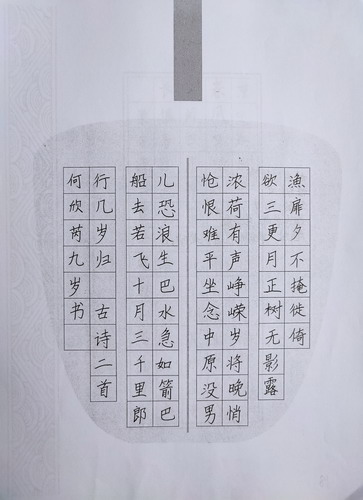 漁扉夕不掩徙倚
欲三更月正树无影露
浓荷有声峥嵘岁将晚悄
怆恨难平坐念中原没男
儿恐浪生巴水急如箭巴
船去若飞十月三千里郎
行几岁归 古诗二首
何欣芮九岁书